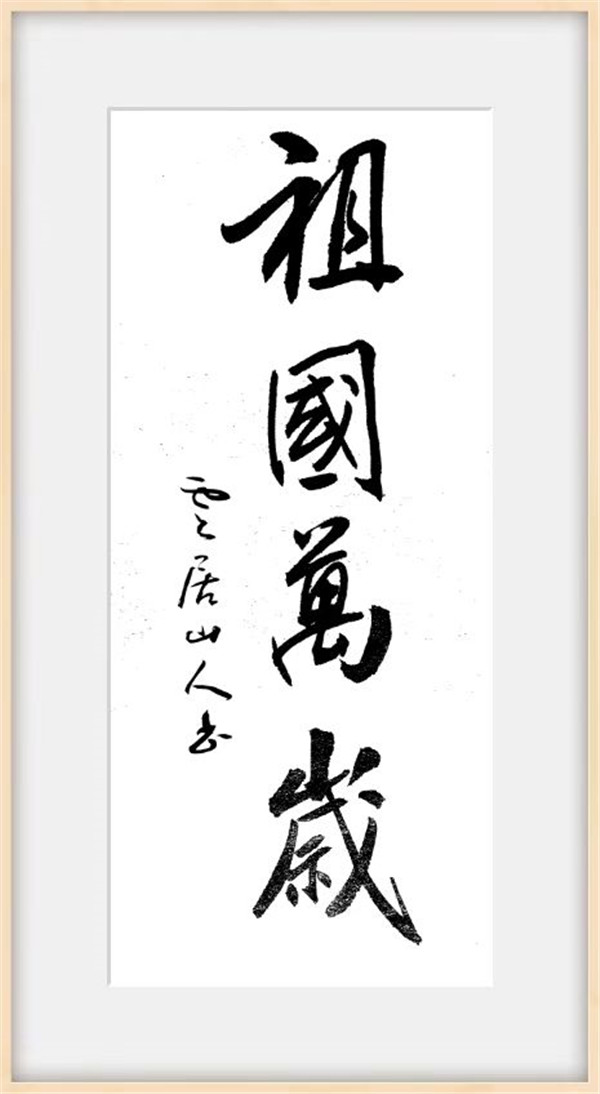 祖國萬歲
雲居山人书